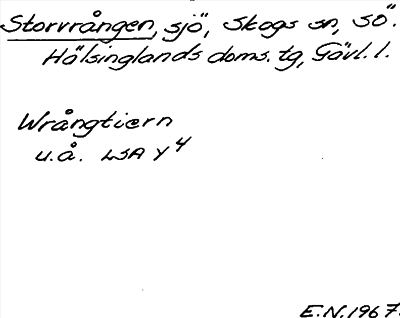 Storvrången, sjö, Skogs sn, SÖ.
Hälsinglands doms. tg, Gävl. l.
Wrångtiern
u.å. LSA Y4
E.N. 1967.